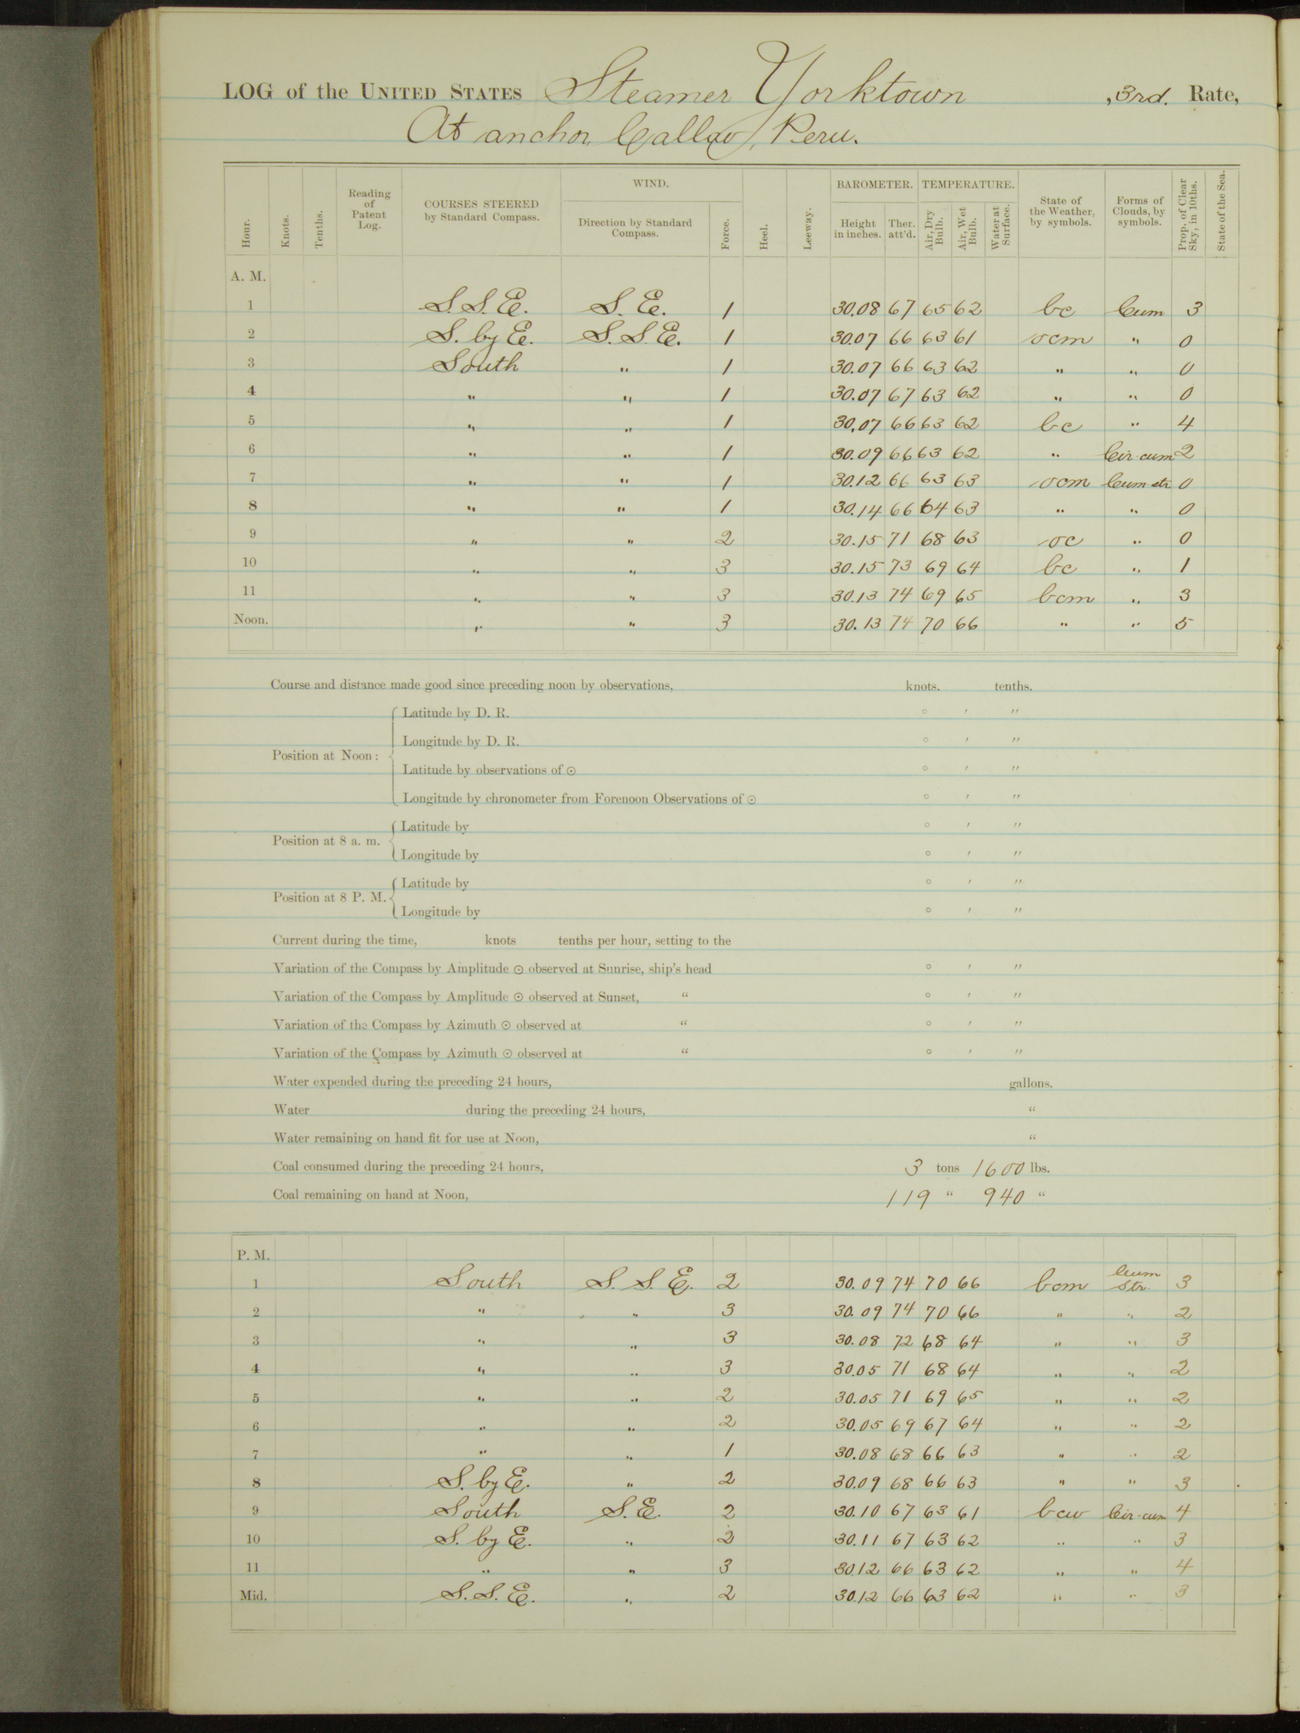 LOG of the UNITED STATES Steamer Yorktown, 3rd. Rate,
At anchor, Callao, Peru.
Hour. Knots. Tenths. Reading of Patent Log. COURSES STEERED by Standard Compass. WIND. Direction by Standard Compass. Force. Heel. Leeway. BAROMETER. Height in inches. Ther. att'd. TEMPERATURE. Air, Dry Bulb. Air, Wet Bulb. Water at Surface. State of the Weather, by symbols. Forms of Clouds, by symbols. Prop. of Clear Sky, in 10ths. State of the Sea.
A. M.
1 S.S.E. S.E. 1 30.08 67 65 62 bc Cum 3
2 S. by E. S.S.E. 1 30.07 66 63 61 ocm " 0
3 South " 1 30.07 66 63 62 " " 0
4 " " 1 30.07 67 63 62 " " 0
5 " " 1 30.07 66 63 62 bc " 4
6 " " 1 30.09 66 63 62 " Cir-cum 2
7 " " 1 30.12 66 63 63 ocm Cum str 0
8 " " 1 30.14 66 64 63 " " 0
9 " " 2 30.15 71 68 63 oc " 0
10 " " 3 30.15 73 69 64 bc " 1
11 " " 3 30.13 74 69 65 bcm " 3
Noon. " " 3 30.13 74 70 66 " " 5
Course and distance made good since preceding noon by observations, knots. tenths.
Latitude by D. R. ° ′ ″
Longitude by D. R. ° ′ ″
Position at Noon:
Latitude by observations of ☉ ° ′ ″
Longitude by chronometer from Forenoon Observations of ☉ ° ′ ″
Latitude by ° ′ ″
Position at 8 a. m.
Longitude by ° ′ ″
Latitude by ° ′ ″
Position at 8 P. M.
Longitude by ° ′ ″
Current during the time, knots tenths per hour, setting to the
Variation of the Compass by Amplitude ☉ observed at Sunrise, ship's head ° ′ ″
Variation of the Compass by Amplitude ☉ observed at Sunset, " ° ′ ″
Variation of the Compass by Azimuth ☉ observed at " ° ′ ″
Variation of the Compass by Azimuth ☉ observed at " ° ′ ″
Water expended during the preceding 24 hours, gallons.
Water during the preceding 24 hours, "
Water remaining on hand fit for use at Noon, "
Coal consumed during the preceding 24 hours, 3 tons 1600 lbs.
Coal remaining on hand at Noon, 119 " 940 "
P. M.
1 South S.S.E. 2 30.09 74 70 66 bcm Cum Str. 3
2 " " 3 30.09 74 70 66 " " 2
3 " " 3 30.08 72 68 64 " " 3
4 " " 3 30.05 71 68 64 " " 2
5 " " 2 30.05 71 69 65 " " 2
6 " " 2 30.05 69 67 64 " " 2
7 " " 1 30.08 68 66 63 " " 2
8 S. by E. " 2 30.09 68 66 63 " " 3
9 South S.E. 2 30.10 67 63 61 bcw Cir-cum 4
10 S. by E. " 2 30.11 67 63 62 " " 3
11 " " 3 30.12 66 63 62 " " 4
Mid. S.S.E. " 2 30.12 66 63 62 " " 3